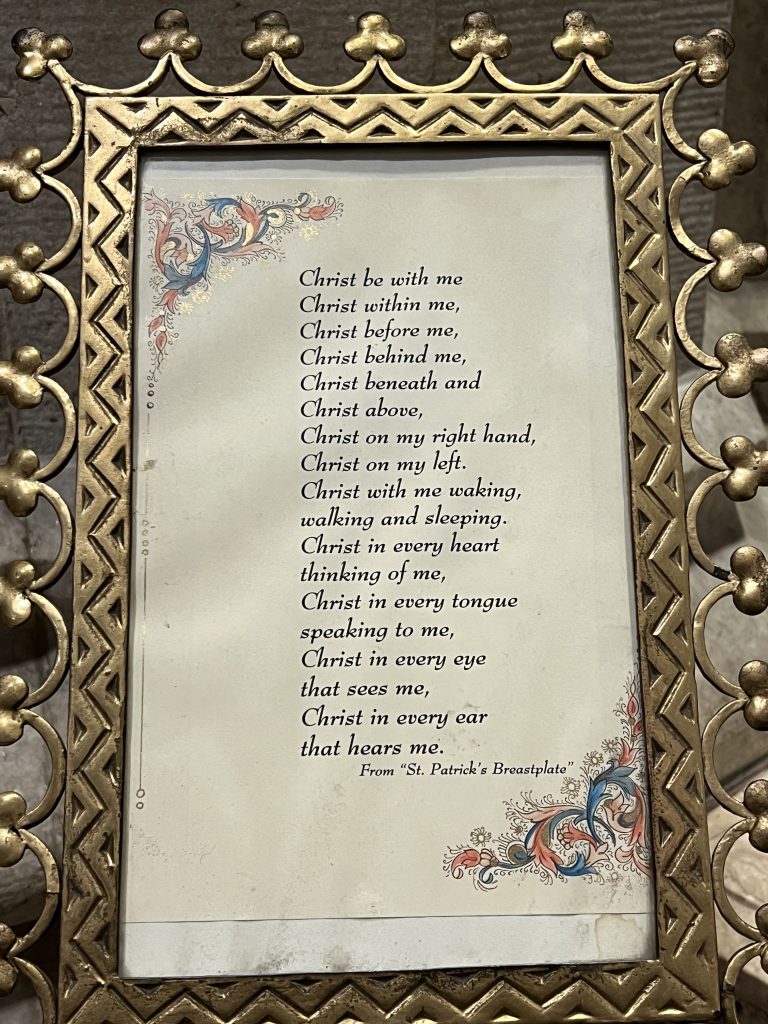 Christ be with me
Christ within me,
Christ before me,
Christ behind me,
Christ beneath and
Christ above,
Christ on my right hand,
Christ on my left.
Christ with me waking,
walking and sleeping.
Christ in every heart
thinking of me,
Christ in every tongue
speaking to me,
Christ in every eye
that sees me,
Christ in every ear
that hears me.
From “St. Patrick’s Breastplate”